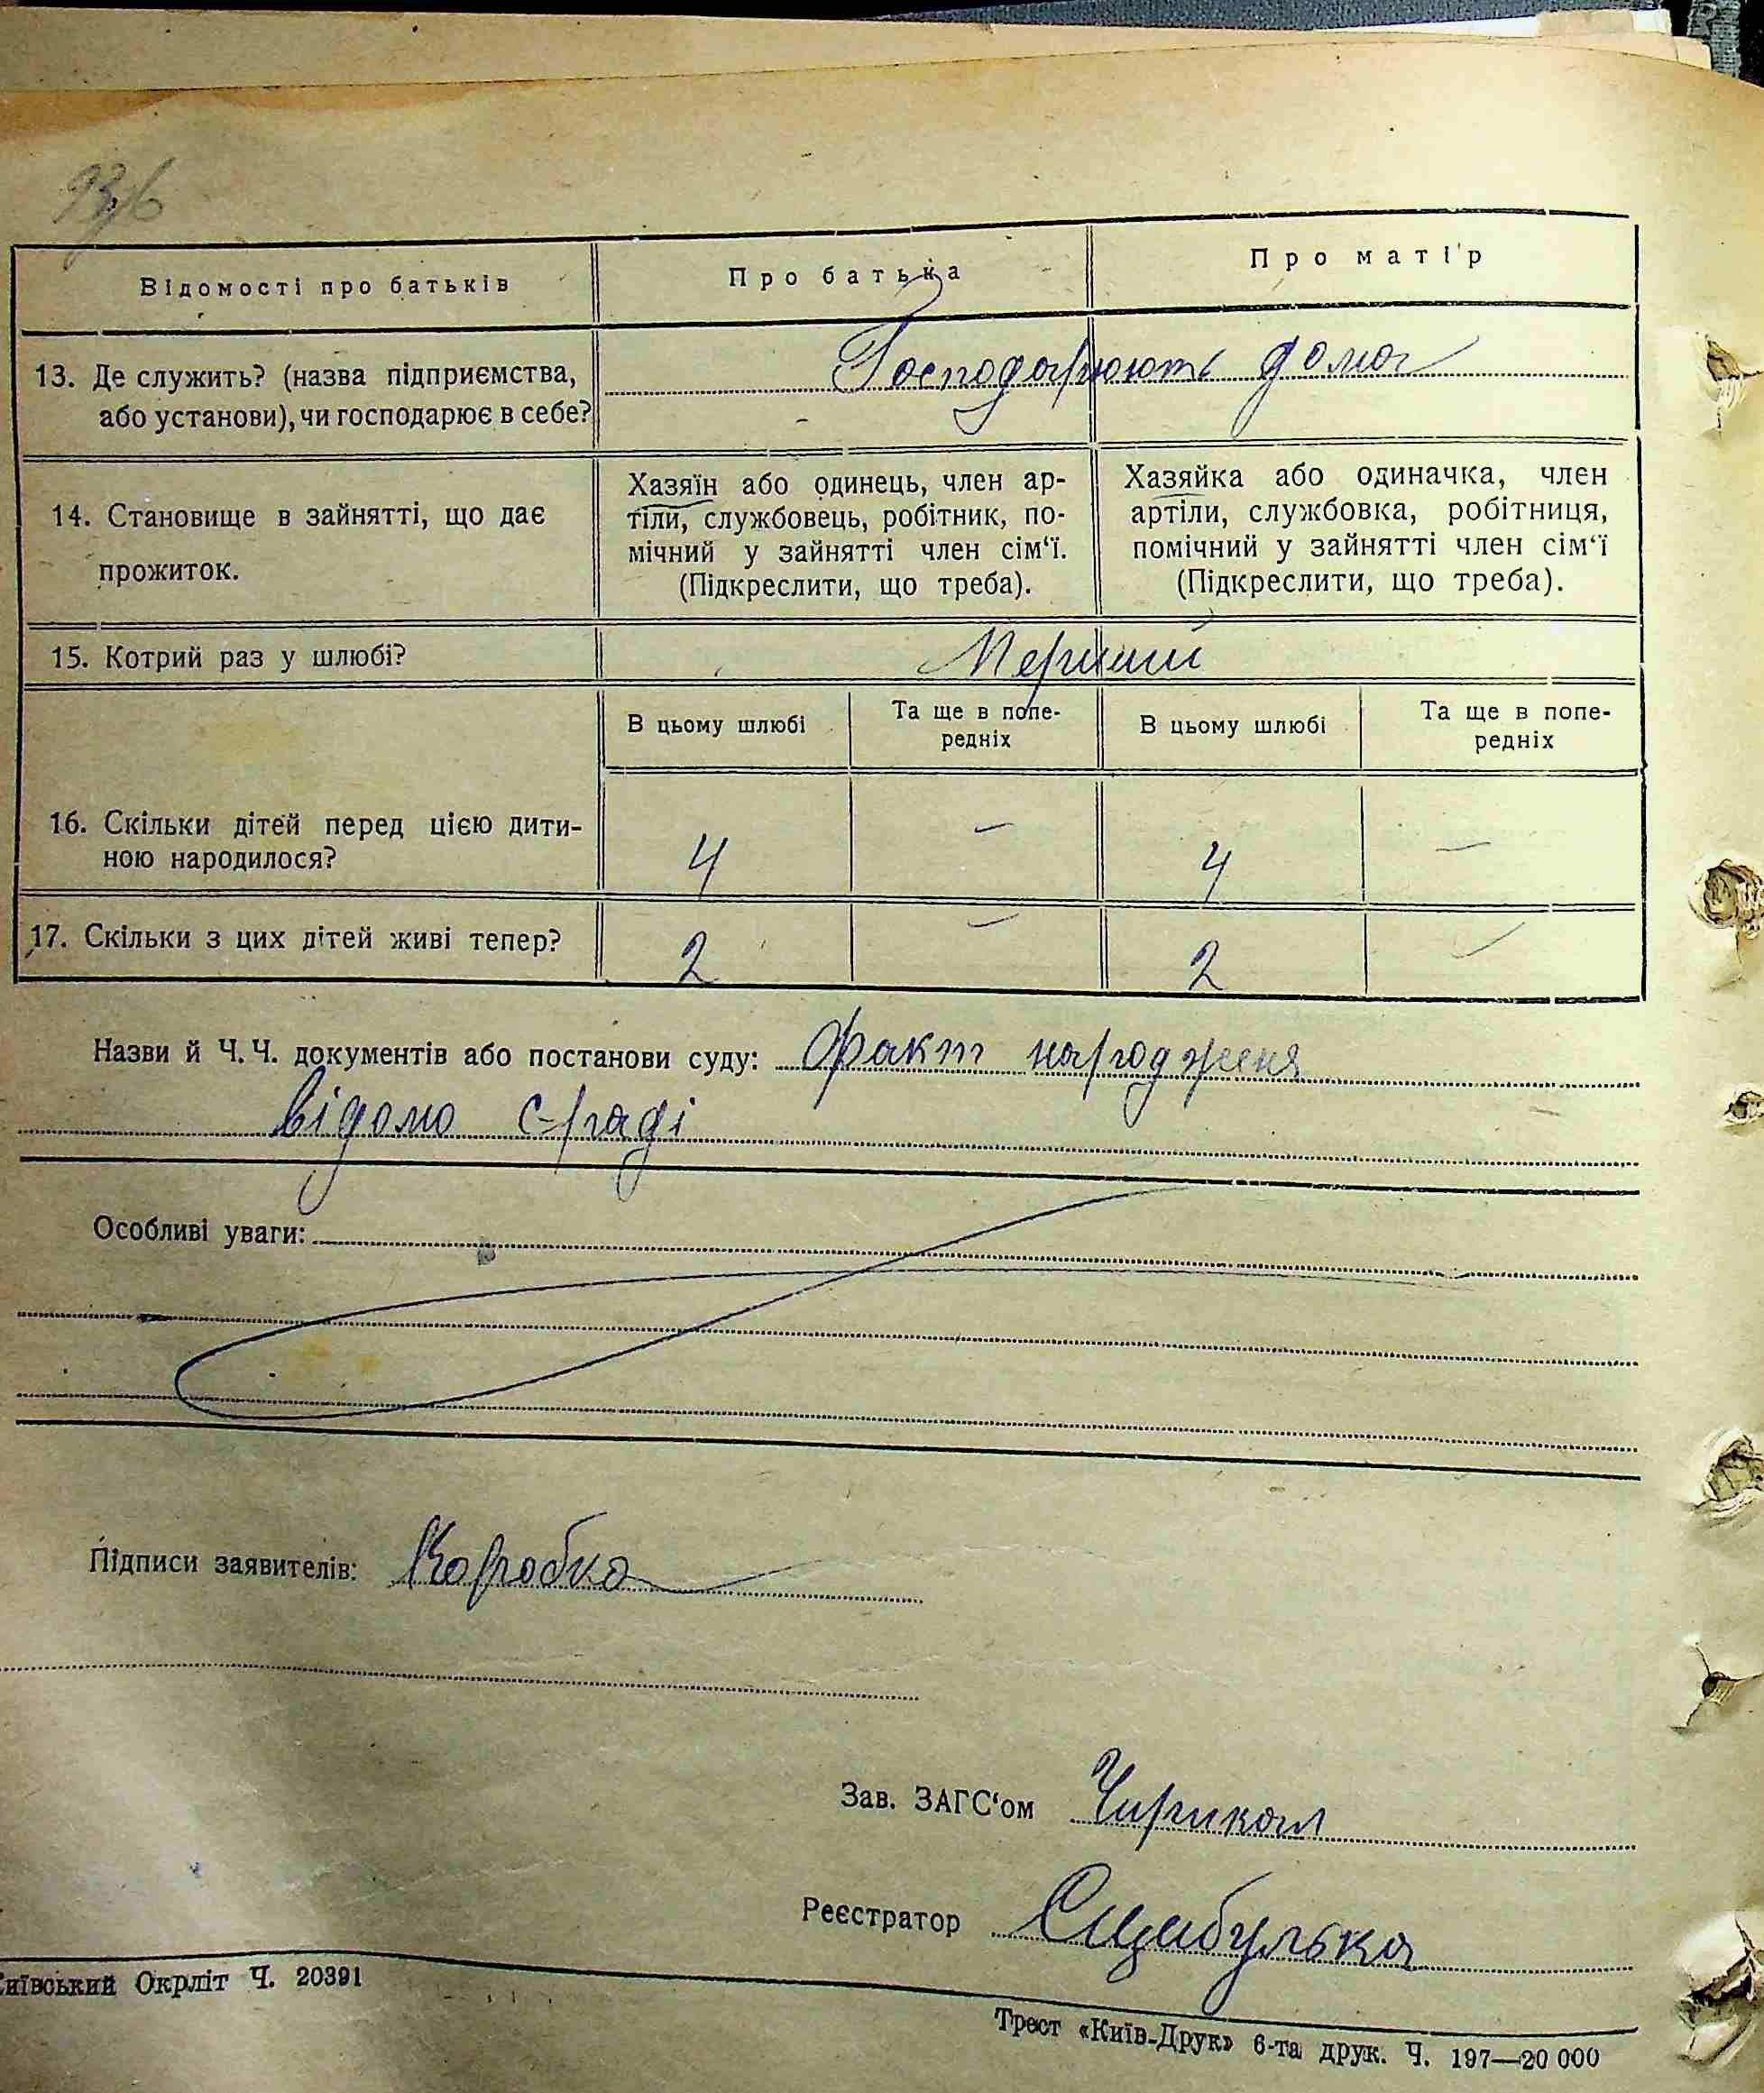 Відомості про батьків
Про батька
Про матір
13. Де служить? (назва підприємства,
або установи), чи господарює в себе?
Господарюють дома
14. Становище в зайнятті, що дає
прожиток.
Хазяїн або одинець, член ар-
тіли, службовець, робітник, по-
мічний у зайнятті член сім‘ї.
(Підкреслити, що треба).
Хазяйка або одиначка, член
артіли, службовка, робітниця,
помічний у зайнятті член сім‘ї
(Підкреслити, що треба).
15. Котрий раз у шлюбі?
Перший
В цьому шлюбі
Та ще в попе-
редніх
В цьому шлюбі
Та ще в попе-
редніх
16. Скільки дітей перед цією дити-
ною народилося?
4 — 4 —
17. Скільки з цих дітей живі тепер?
2 — 2 —
Назви й Ч. Ч. документів або постанови суду: Факт народженя
відомо с-раді
Особливі уваги:
Підписи заявителів: Коробка
Зав. ЗАГС‘ом
Реєстратор
Київський Окрліт Ч. 20391
Трест «Київ-Друк» 6-та друк. Ч. 197—20 000